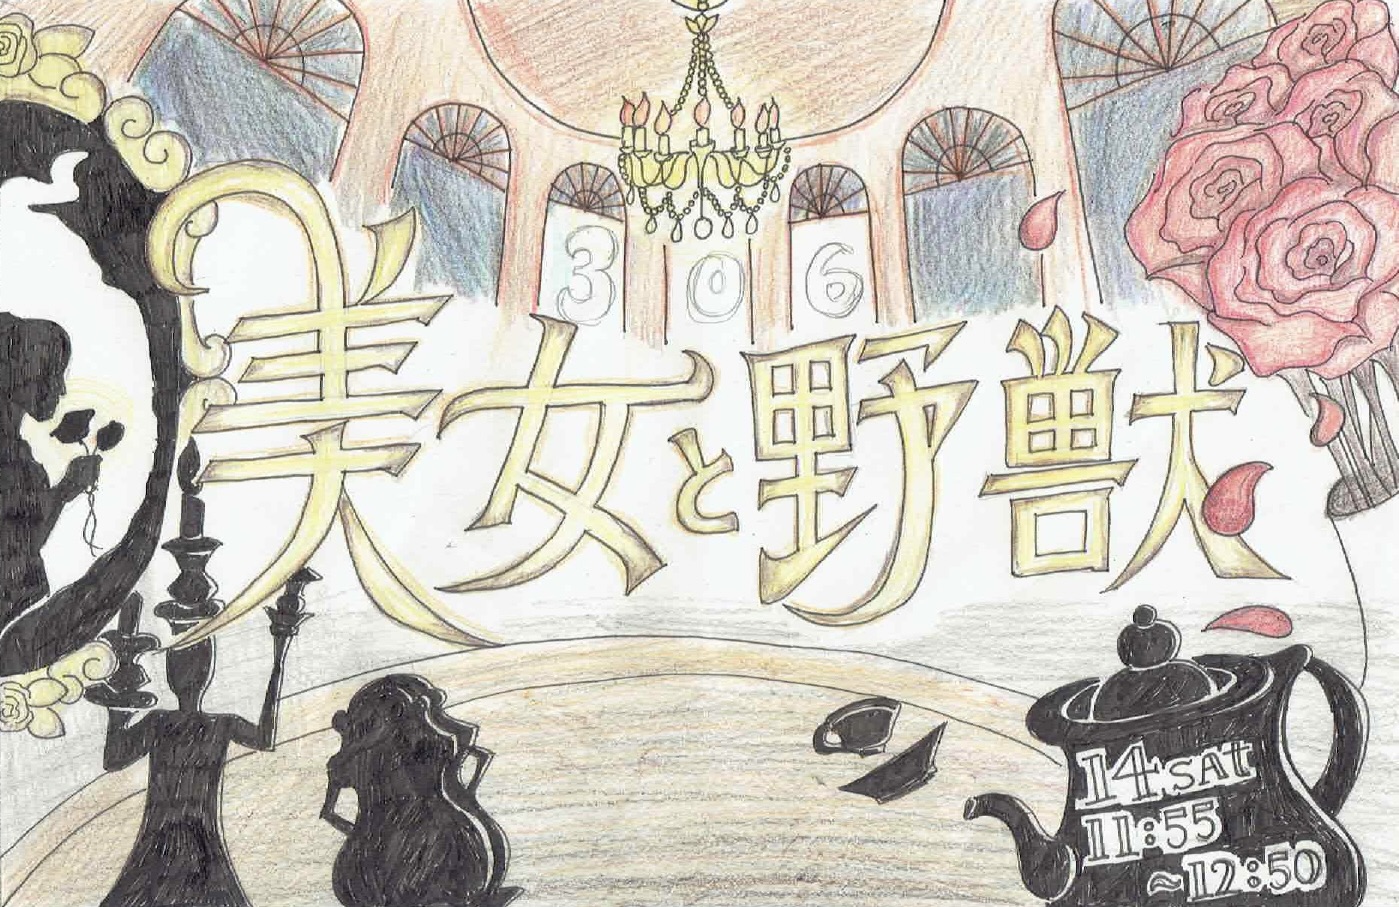 306
美女と野獣
14 SAt
11:55
~12:50